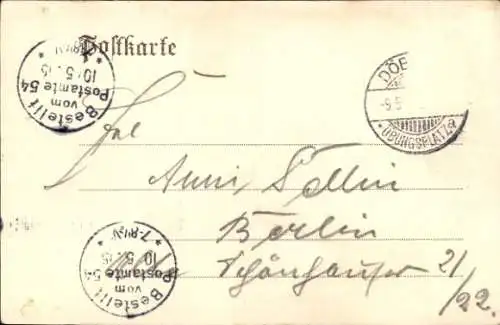 Postkarte
Bestellt
vom
Postamte 54
10 5 15
7-8½V
DÖB
9 5
ÜBUNGSPLATZ
a
Frl
Anni Sellin
Berlin
Schönhauser 21/22.
Bestellt
vom
Postamte 54
10 5 15
7-8½V